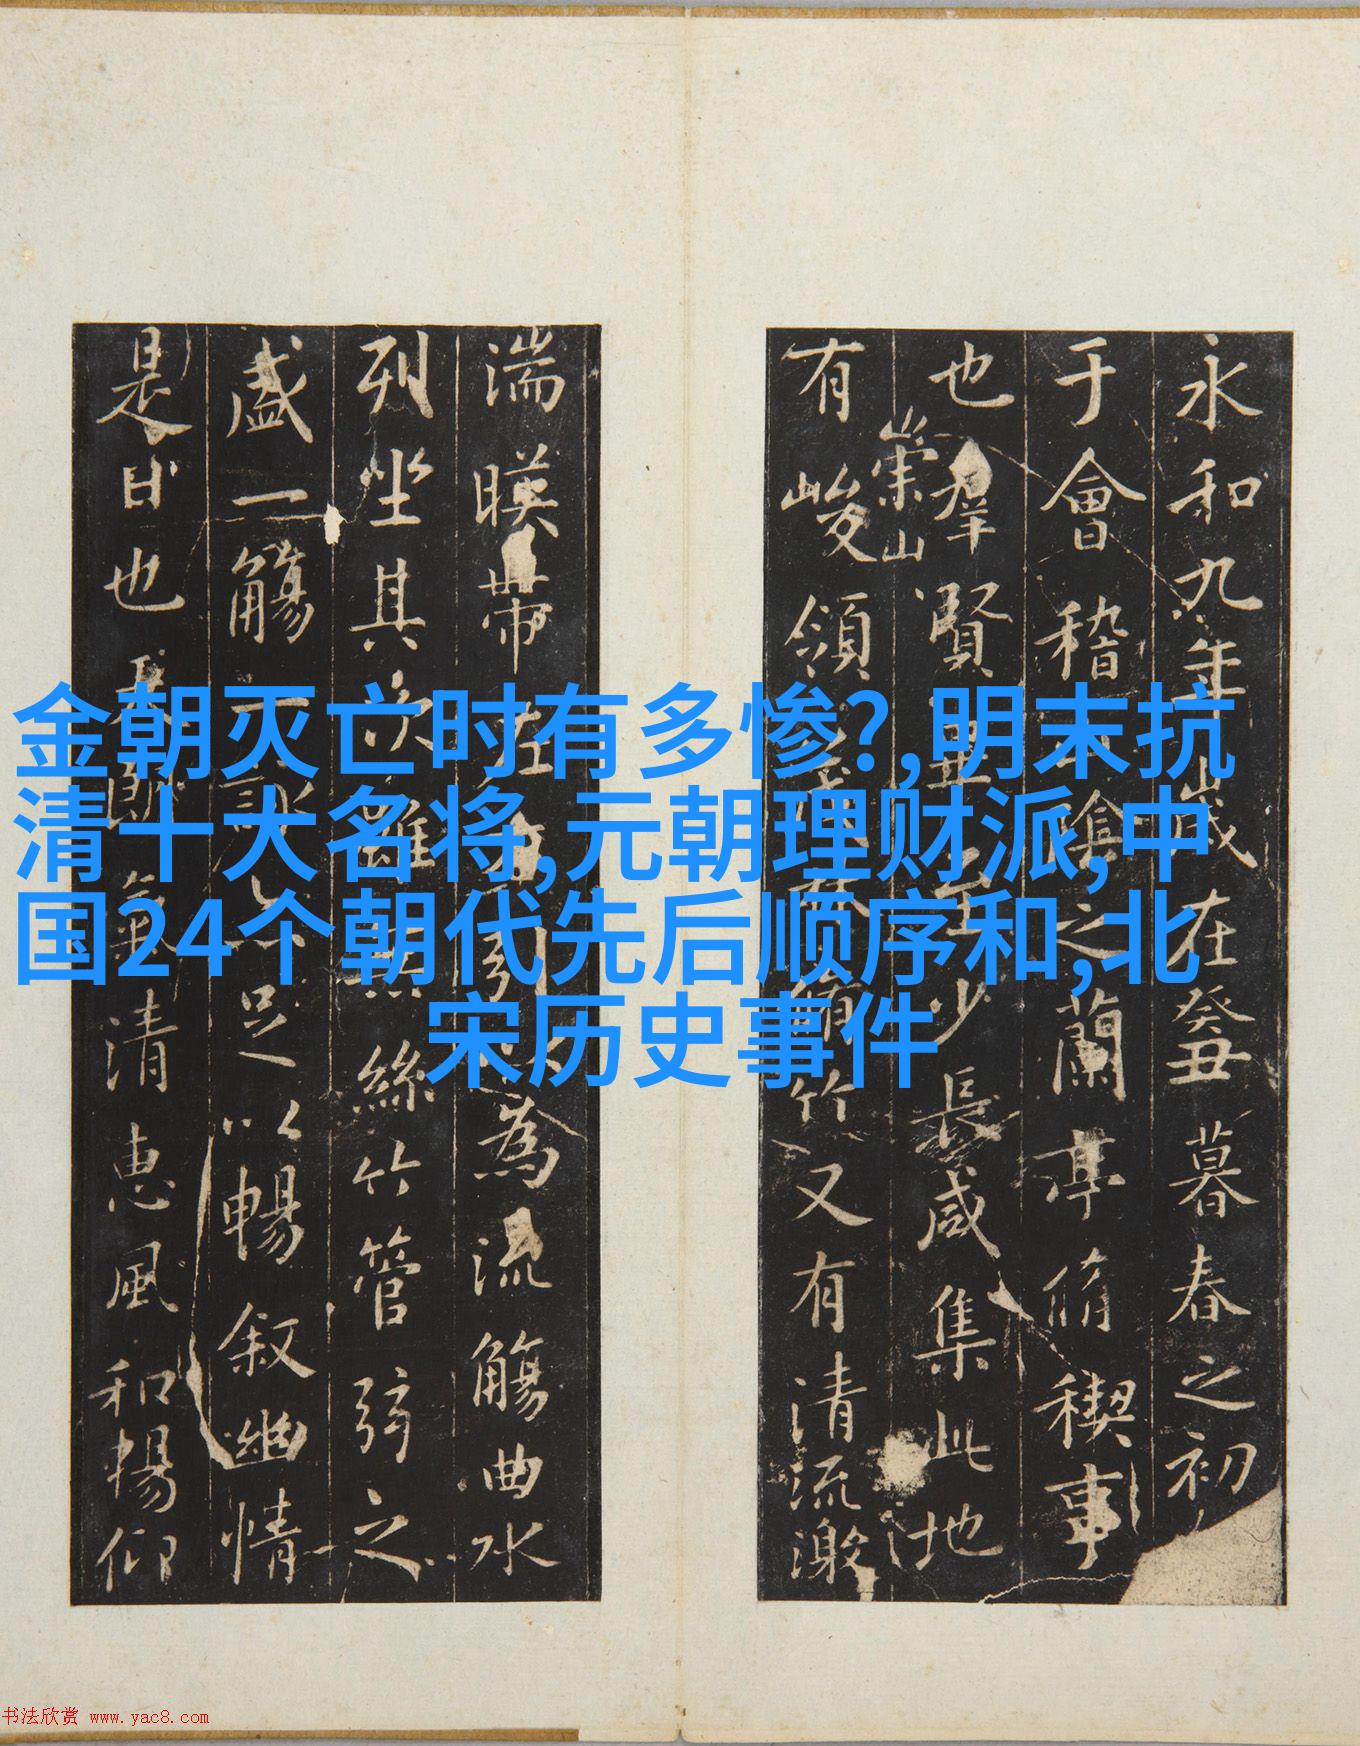 金朝灭亡时有多惨?,明末抗
清十大名将,元朝理财派,中
国24个朝代先后顺序和,北
宋历史事件
永和九年歲在癸丑暮春之初
于會稽山陰之蘭亭脩禊事
也羣賢畢至少長咸集此地
崇山
有峻領茂林脩竹又有清流激
湍暎帶左右引以為流觴曲水
列坐其次雖無絲竹管弦之
盛一觴一詠亦足以暢叙幽情
是日也天朗氣清惠風和暢仰
书法欣赏 www.yac8.com